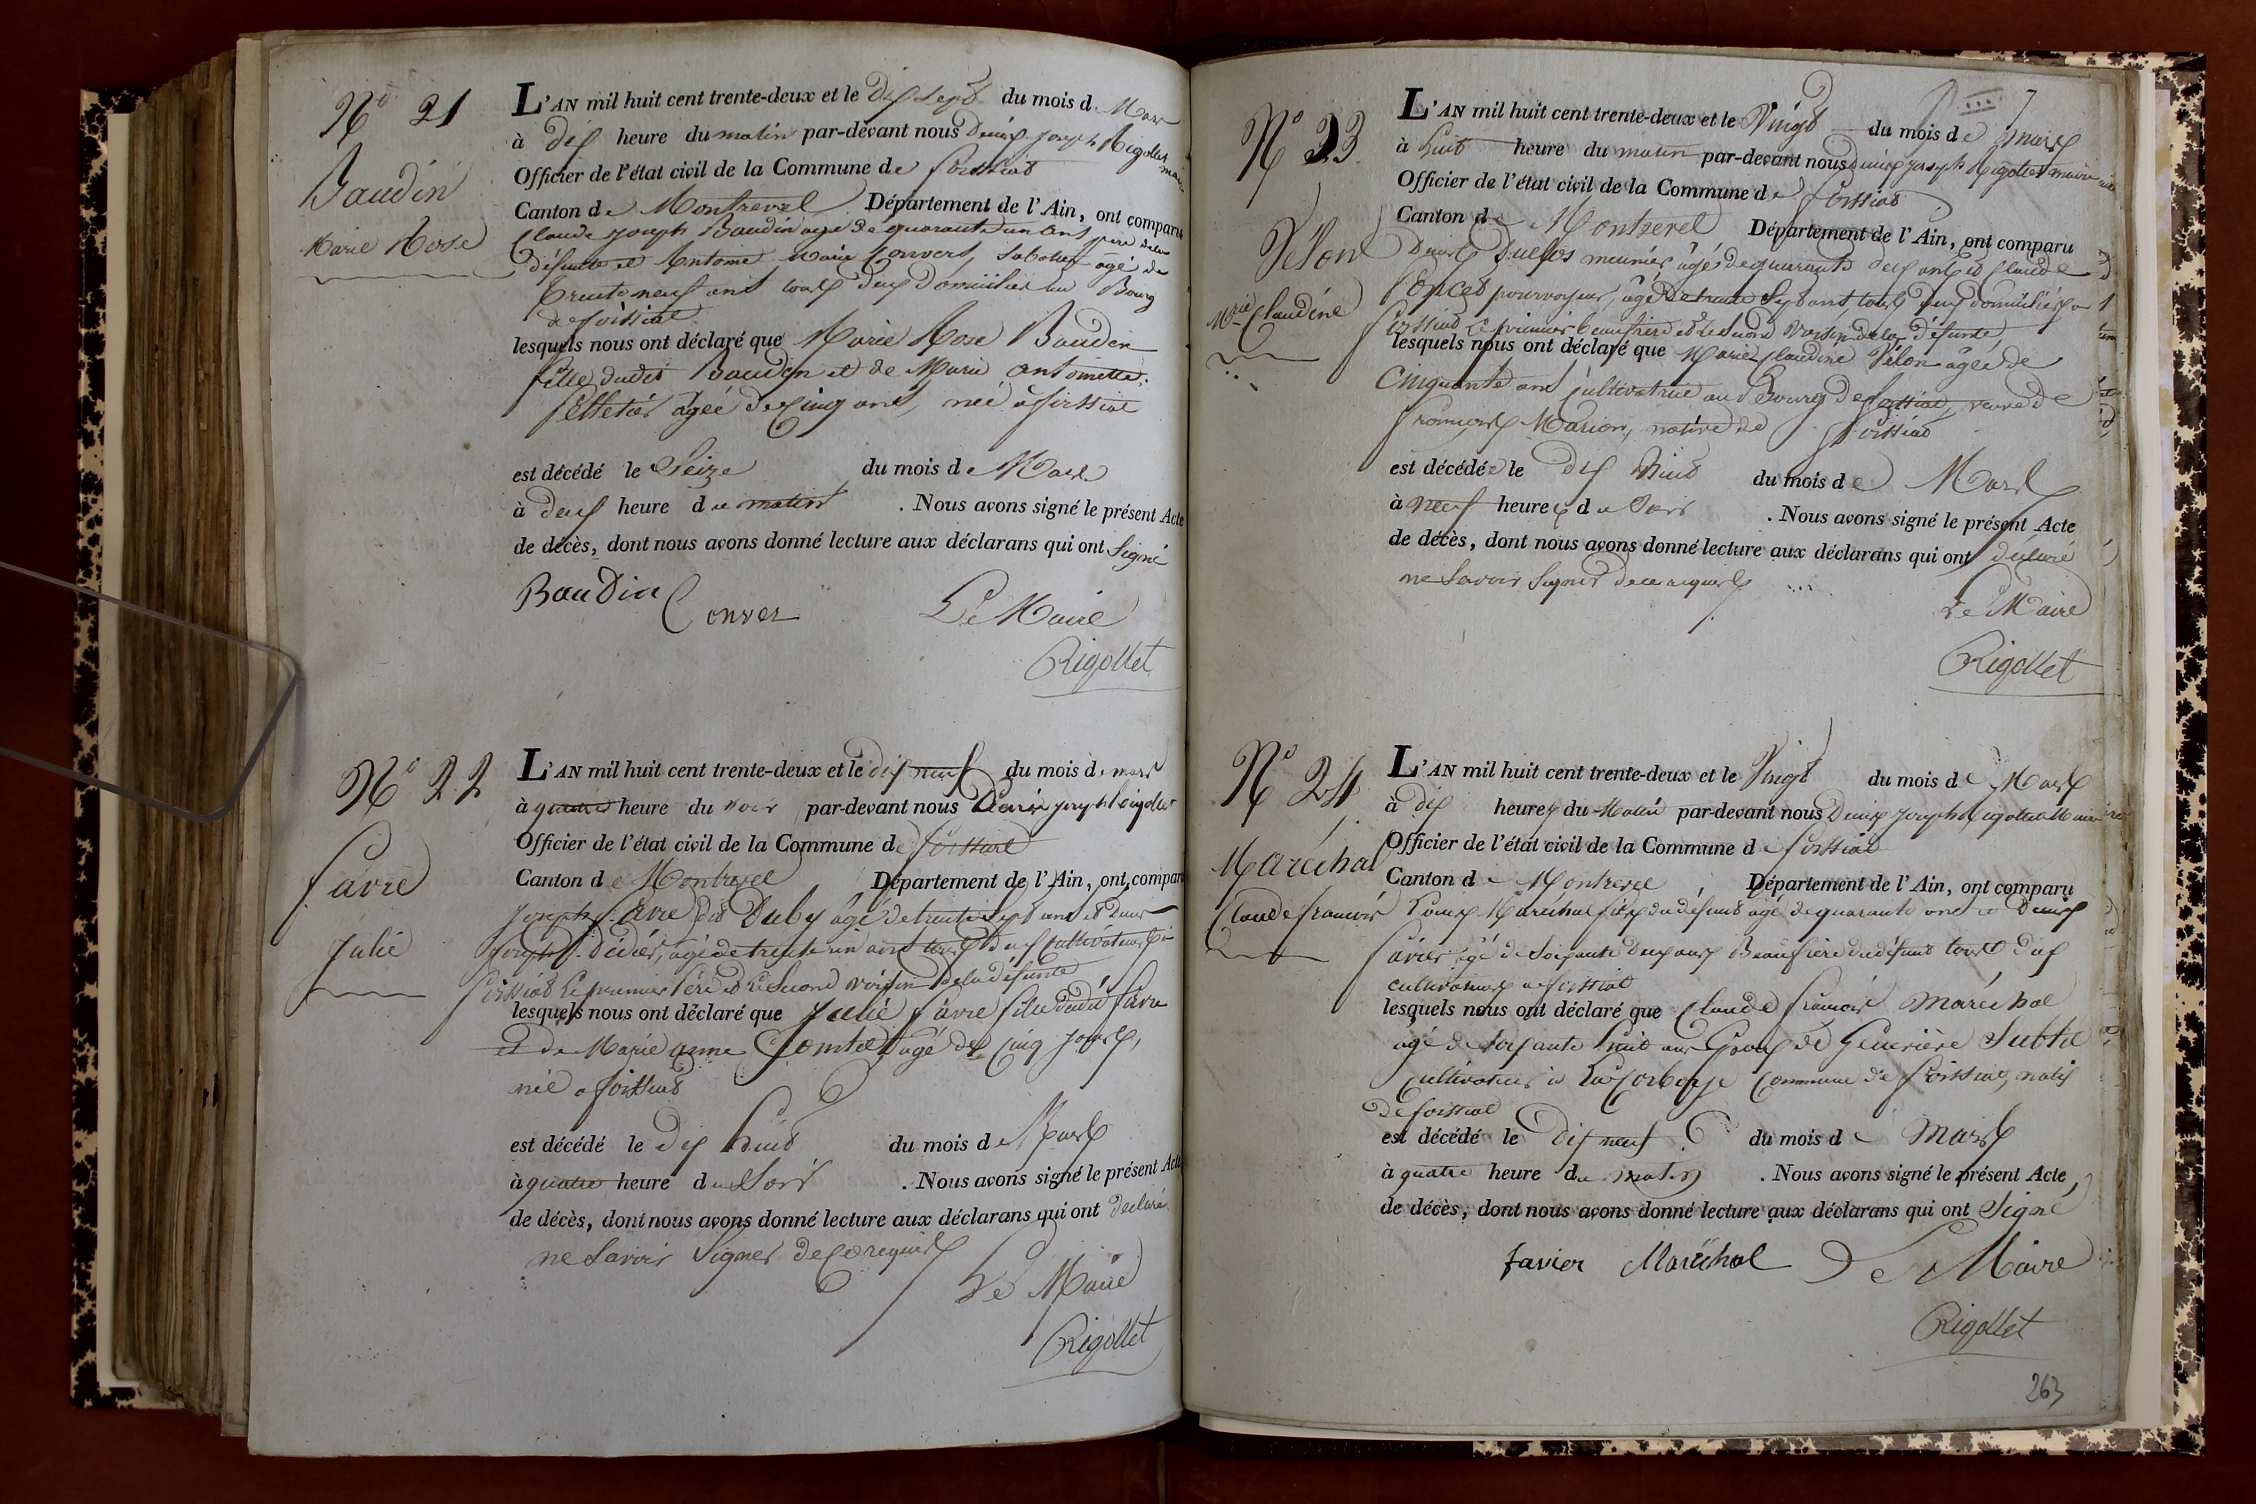 N° 21
Baudin
Marie Rose
L'AN mil huit cent trente-deux et le dix sept du mois de Mars
à dix heure du matin par-devant nous Denis Joseph Rigollet maire
Officier de l'état civil de la Commune de foissiat
Canton de Montrevel Département de l'Ain, ont comparu
Claude Joseph Baudin agé de quarante un ans pere de la
défunte et Antoine Marie Convert, Sabotier âgé de
trente neuf ans tous deux domiciliés au Bourg
de foissiat
lesquels nous ont déclaré que Marie Rose Baudin
fille dudit Baudin et de Marie Antoinette
Pelletier âgée de Cinq ans, née à foissiat
est décédé le Seize du mois de Mars
à deux heure du matin . Nous avons signé le présent Acte
de décès, dont nous avons donné lecture aux déclarans qui ont Signé
Baudin Conver Le Maire
Rigollet
N° 22
favre
Julie
L'AN mil huit cent trente-deux et le dix neuf du mois de mars
à quatre heure du soir par-devant nous Denis Joseph Rigollet
Officier de l'état civil de la Commune de foissiat
Canton de Montrevel Département de l'Ain, ont comparu
Joseph favre dit Duby âgé de trente Sept ans et Denis
Joseph Didier, agé de trente un ans tous deux Cultivateurs à
foissiat Le premier Père et Le Second voisin de la défunte
lesquels nous ont déclaré que Julie favre fille dudit favre
et de Marie anne Comtet âgé de Cinq Jours,
née a foissiat
est décédé le dix huit du mois de Mars
à quatre heure du Soir . Nous avons signé le présent Acte
de décès, dont nous avons donné lecture aux déclarans qui ont declaré
ne Savoir Signer de Ce requis
Le Maire
Rigollet
N° 23
Velon
Mrie Claudine
L'AN mil huit cent trente-deux et le Vingt du mois de mars
à huit heure du matin par-devant nous Denis Joseph Rigollet maire
Officier de l'état civil de la Commune de foissiat
Canton de Montrevel Département de l'Ain, ont comparu
Denis Duclos meunier âgé de quarante deux ans et Claude
Poncet pourvoyeur, âgé de trente Sept ans, tous deux domiciliés a
foissiat Le premier beaufrere et Le Second Voisin de la défunte
lesquels nous ont déclaré que Marie Claudine Vélon âgée de
Cinquante ans Cultivatrice au Bourg de foissiat, veuve de
françois Marion, native de foissiat
est décédée le dix huit du mois de Mars
à neuf heures du Soir . Nous avons signé le présent Acte
de décès, dont nous avons donné lecture aux déclarans qui ont déclaré
ne Savoir Signer de ce requis
Le Maire
Rigollet
N° 24
Maréchal
Claude françois
L'AN mil huit cent trente-deux et le Vingt du mois de Mars
à dix heures du Matin par-devant nous Denis Joseph Rigollet Maire
Officier de l'état civil de la Commune de foissiat
Canton de Montrevel Département de l'Ain, ont comparu
Louis Maréchal fils du défunt agé de quarante ans et Denis
favier âgé de Soixante deux ans Beaufrère du défunt tous deux
cultivateurs a foissiat
lesquels nous ont déclaré que Claude françois Maréchal
agé de Soixante huit ans Epoux de Genevière Subtil
Cultivateur à Commune de foissiat, natif
de foissiat
est décédé le dix neuf du mois de Mars
à quatre heure du matin . Nous avons signé le présent Acte,
de décès, dont nous avons donné lecture aux déclarans qui ont Signé
favier Maréchal Le Maire
Rigollet
263